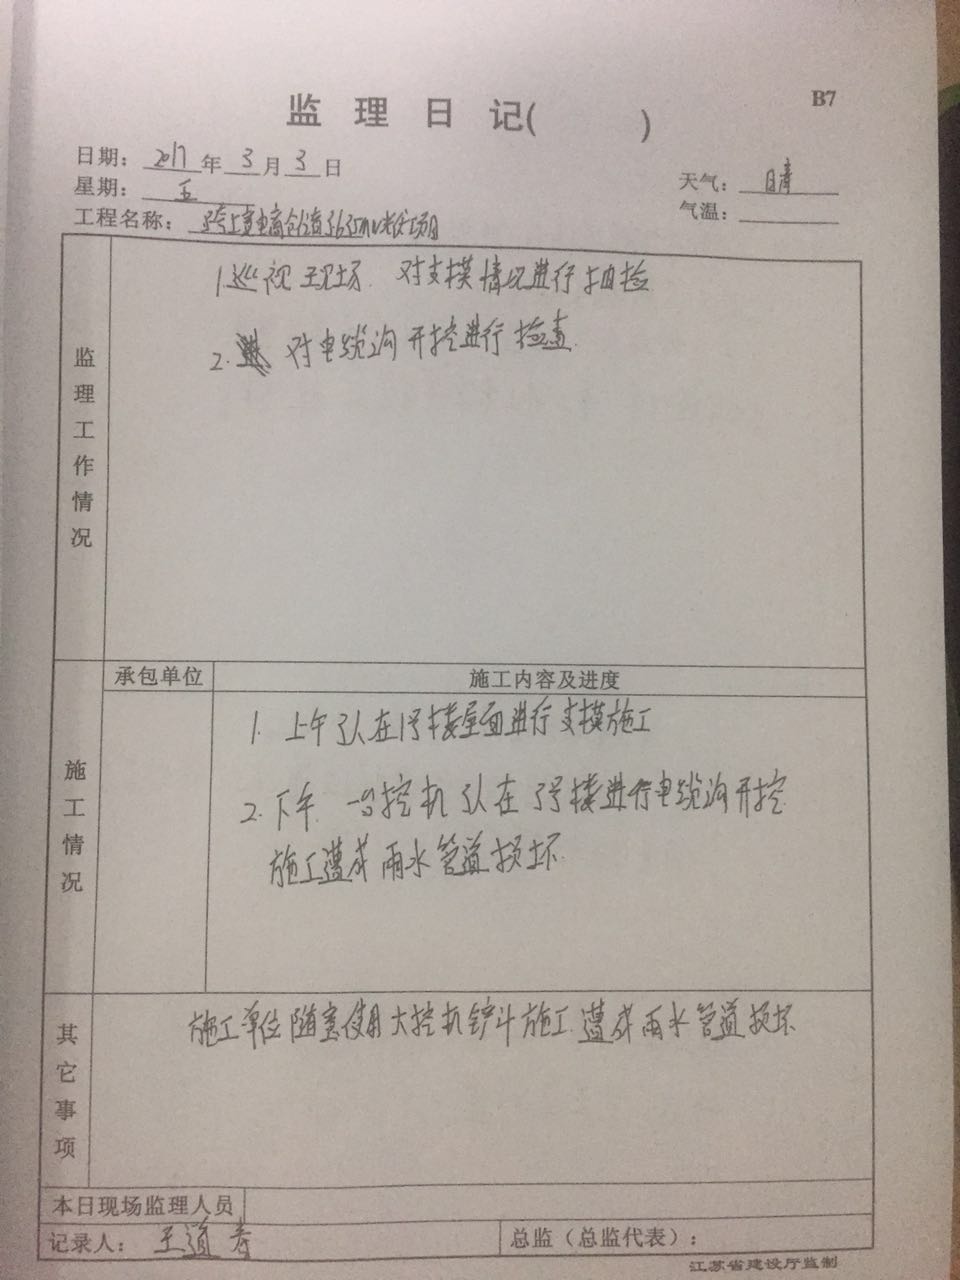 B7
监理日记( )
日期：2017年3月3日
星期：五
天气：晴
气温：
工程名称：
监理工作情况
1.巡视现场.对支模情况进行抽检
2.对电缆沟开挖进行检查.
承包单位
施工内容及进度
施工情况
1.上午 队在1号楼屋面进行支模施工
2.下午 挖机 队在 号楼进行电缆沟开挖
施工遭成雨水管道损坏.
其它事项
施工单位随意使用大挖机铲斗施工.遭成雨水管道损坏
本日现场监理人员
记录人：王道
总监（总监代表）：
江苏省建设厅监制